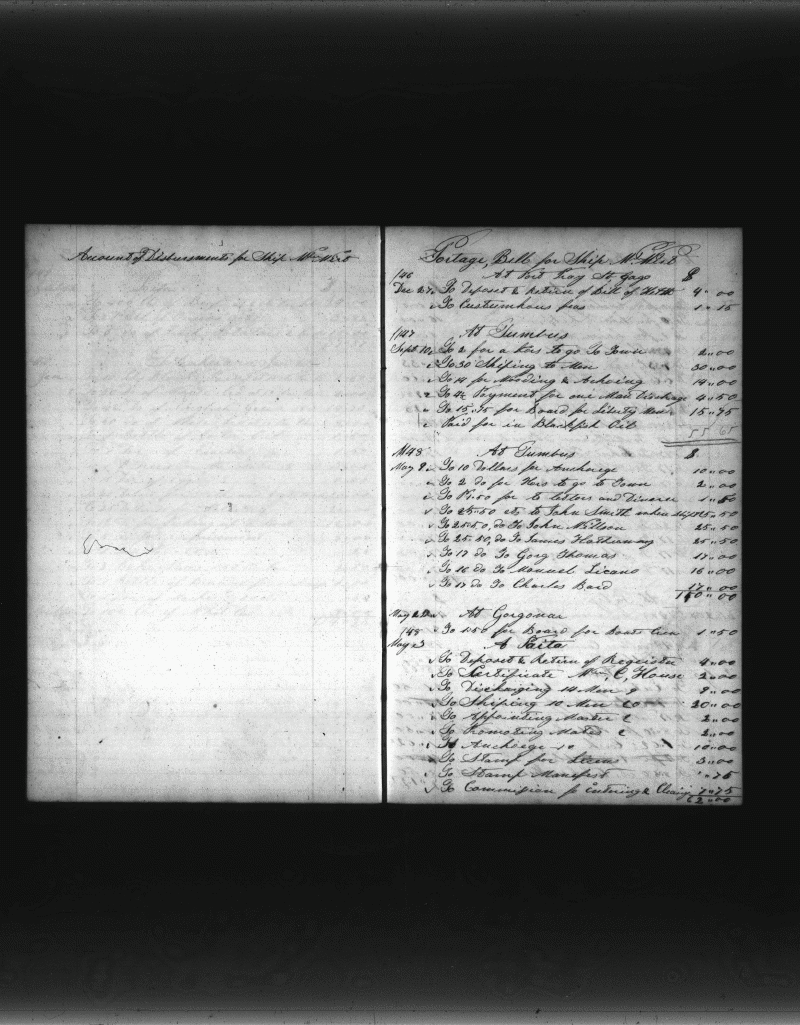 Account of Disbursments for Ship Wm Wirt
Portage Bill for Ship Wm Wirt
/46 At Port Pray St Gago $
Dec 27 To Deposet & Return of Bill of Helth 4 " 00
" To Custumhous fees 1 " 15
/47 At Tumbus
Sept 10 To 2 for a Hors to go To Town 2 " 00
" To 30 Shiping to Men 30 " 00
" To 14 for Mooding & Achoring 14 " 00
" To 4 Payment for one Man Discharge 4 " 50
" To 15.75 for Board for Liberty Men 15 " 75
" Paid for in Blackfish Oil 55 65
/48 At Tumbus $
May 9 To 10 Dollars for Anchorege 10 " 00
" To 2 do for Hors to go to Town 2 " 00
" To for to letters and 1 " 50
" To 25.50 to John Smith 25 " 50
" To 25.50, do To John Nillson 25 " 50
" To 25.50, do To James Hathaway 25 " 50
" To 17 do To Gorg Thomas 17 " 00
" To 16 do To Manuel 16 " 00
" To 17 do To Charles Bard 17 " 00
140 " 00
May At Gorgonar
/48 To 1.50 for Board for Boats Crew 1 " 50
May 23 A Paita
" To Deposet & Return of Register 4 " 00
" To Certificate Wm C, House 2 " 00
" To Discharging 14 Men 9 9 " 00
" To Shiping 10 Men 20 20 " 00
" To Appointing Master 2 2 " 00
" To Promoting Mates 2 2 " 00
" To Anchorege 10 10 " 00
" To Stamp for 3 " 00
" To Stamp Manifest " 75
" To Commission for Entering & Clearing 7 " 75
62 " 00